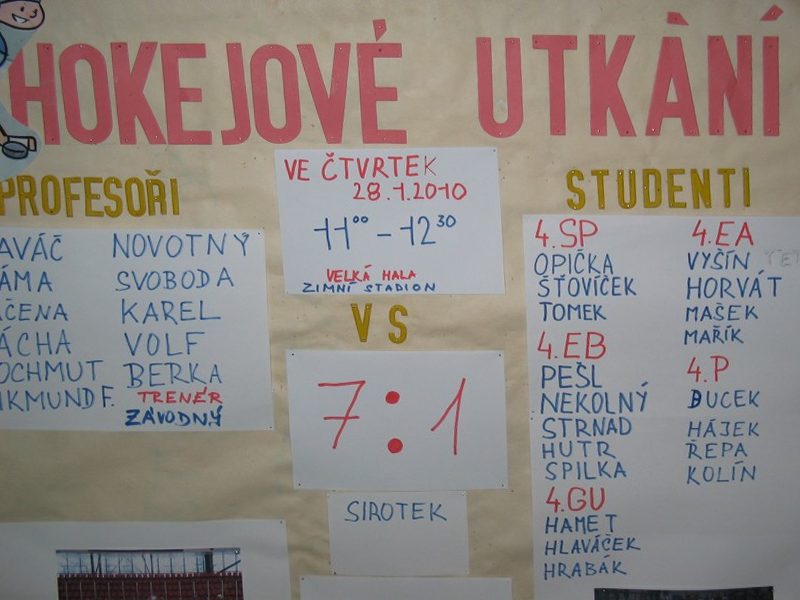 HOKEJOVÉ UTKÀNÍ
PROFESOŘI
NOVOTNÝ
SVOBODA
KAREL
VOLF
BERKA
TRENÉR
ZÁVODNÝ
VE ČTVRTEK
28.1.2010
11⁰⁰ - 12³⁰
VELKÁ HALA
ZIMNÍ STADION
VS
7:1
SIROTEK
STUDENTI
4.SP
OPIČKA
ŠŤOVÍČEK
TOMEK
4.EB
PEŠL
NEKOLNÝ
STRNAD
HUTR
SPILKA
4.GU
HAMET
HLAVÁČEK
HRABÁK
4.EA
VYŠÍN
HORVÁT
MAŠEK
MAŘÍK
4.P
DUCEK
HÁJEK
ŘEPA
KOLÍN